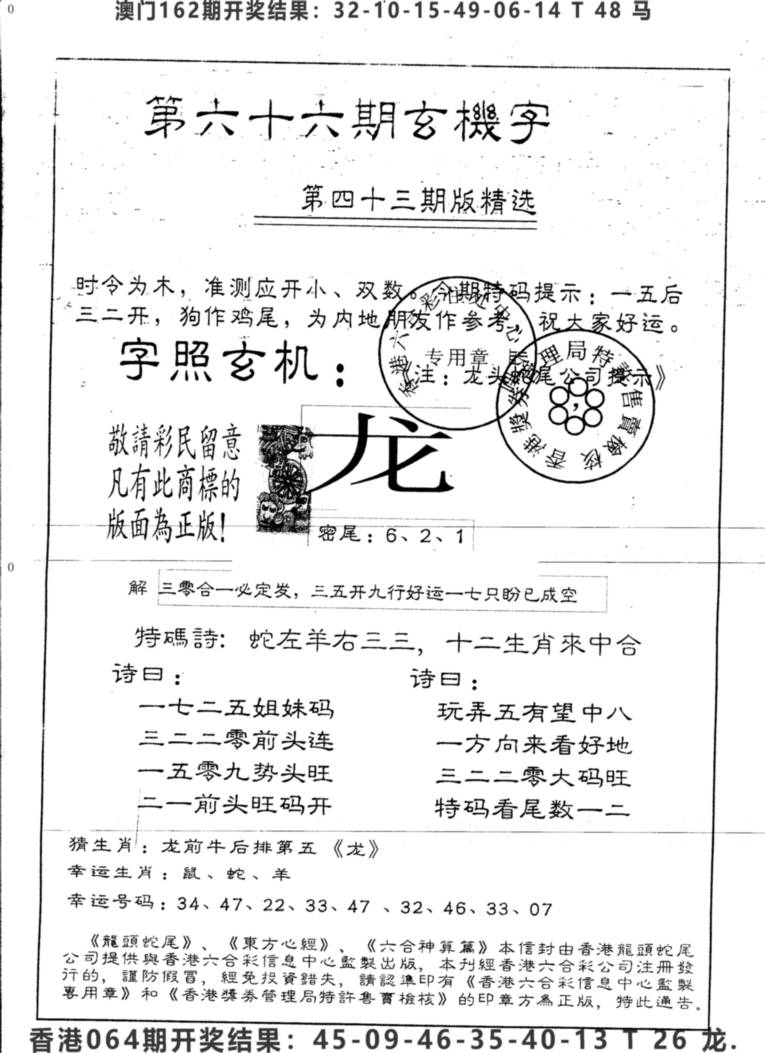 0
澳门162期开奖结果：32-10-15-49-06-14 T 48 马
第六十六期玄機字
第四十三期版精选
时令为木，准测应开小、双数。今期特码提示：一五后
三二开，狗作鸡尾，为内地朋友作参考，祝大家好运。
字照玄机：
《注：龙头蛇尾公司提示》
专用章
敬請彩民留意
凡有此商標的
版面為正版！
龙
密尾：6、2、1
0
解 三零合一必定发，三五开九行好运一七只盼已成空
特碼詩：蛇左羊右三三，十二生肖來中合
诗曰：
一七二五姐妹码
三二二零前头连
一五零九势头旺
二一前头旺码开
诗曰：
玩弄五有望中八
一方向来看好地
三二二零大码旺
特码看尾数一二
猜生肖：龙前牛后排第五《龙》
幸运生肖：鼠、蛇、羊
幸运号码：34、47、22、33、47 、32、46、33、07
《龍頭蛇尾》、《東方心經》、《六合神算篇》本信封由香港龍頭蛇尾
公司提供與香港六合彩信息中心監製出版，本刊經香港六合彩公司注冊發
行的，謹防假冒，經免投資錯失，請認準印有《香港六合彩信息中心監製
專用章》和《香港獎券管理局特許售賣檢核》的印章方為正版，特此通告。
香港064期开奖结果：45-09-46-35-40-13 T 26 龙.